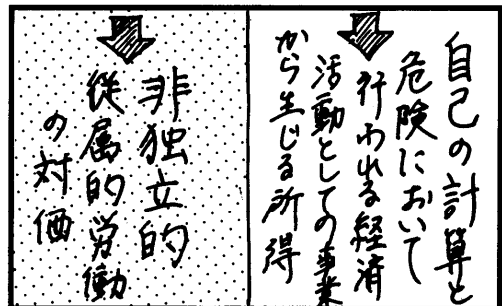 自己の計算と
危険において
行われる経済
活動としての事業
から生じる所得
非独立的
従属的労働
の対価